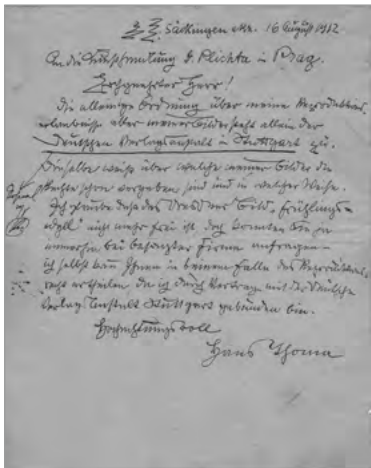 z. Z. Säckingen a/Rh. 16 August 1912
An die Kunsthandlung J. Plichta in Prag.
Hochgeehrter Herr!
Die alleinige Ordnung über meine Reproduktions-
erlaubnisse aber meiner Bilder steht allein der
Deutschen Verlagsanstalt in Stuttgart zu.
Dieselbe weiss über welche meiner Bilder die
Rechte schon vergeben sind und in welcher Weise.
Ich glaube dass das Dresdner Bild „Frühlings-
idyll" nicht mehr frei ist, doch könnten Sie ja
immerhin bei besagter Firma anfragen –
ich selbst kann Ihnen in keinem Falle das Reproduktions-
recht erteilen, da ich durch Vertrag mit der Deutsche
Verlag Anstalt Stuttgart gebunden bin.
Hochachtungsvoll
Hans Thoma